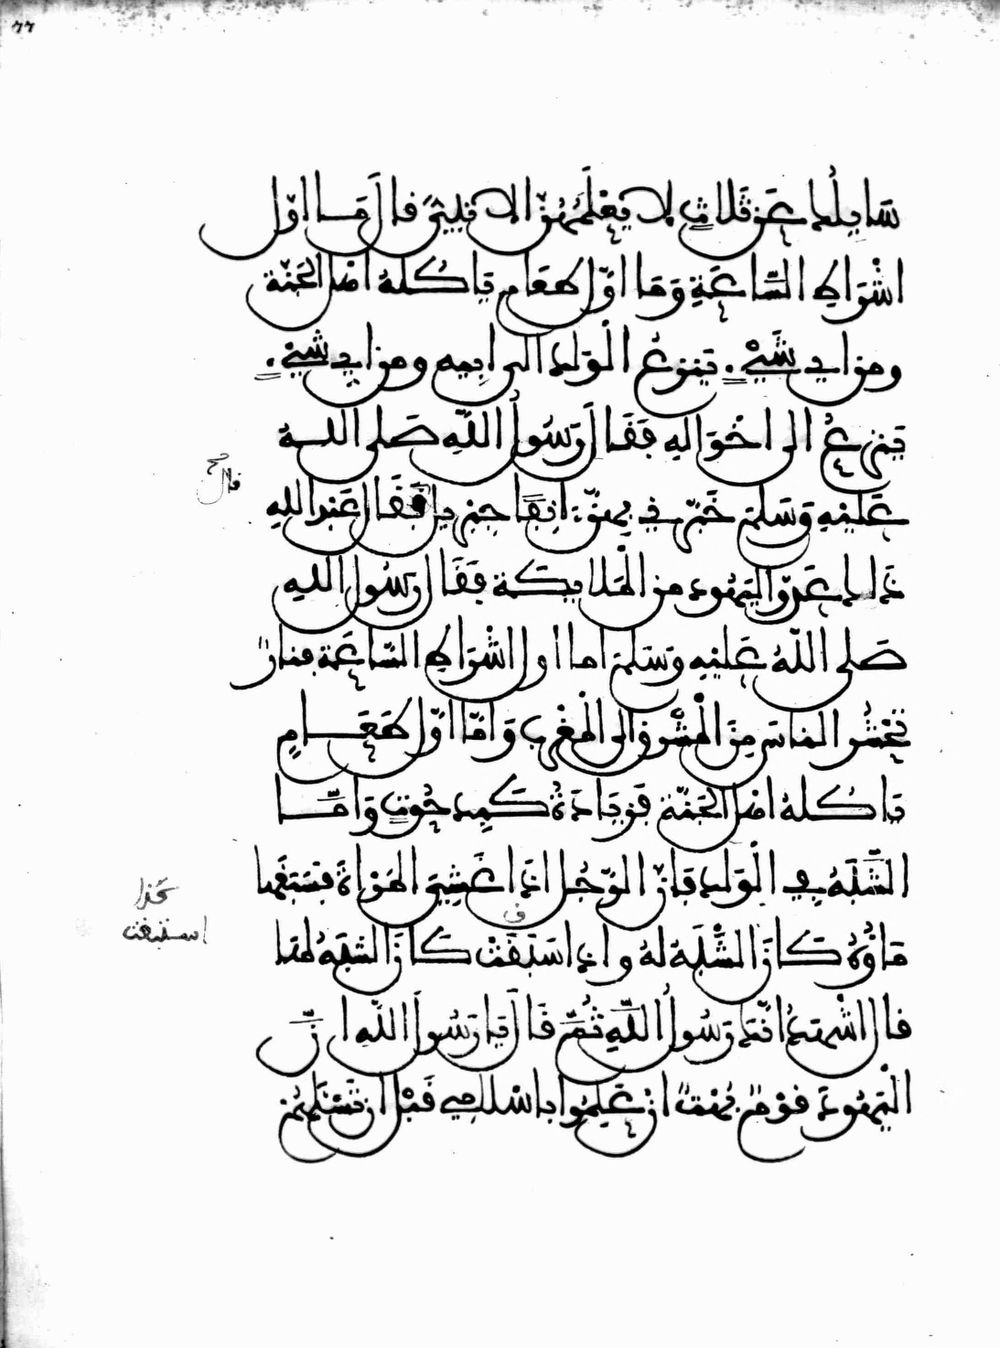 سَايِلُكَ عَنْ ثَلَاثٍ لَا يَعْلَمُهُنَّ إلا نَبِيٌّ قال مَا أَوّل
اشْرَاطِ السَّاعَةِ وَمَا أَوّل طَعَامٍ يَاكُلهُ اهْل الجَنّة
ومن اي شَيْءٍ يَنزِعُ الْوَلد الى ابِيهِ ومن اي شَيْءٍ
يَنزِعُ الى اخْوَالِهِ فَقَالَ رَسُولُ اللّهِ صَلى اللهُ
عَلَيْهِ وَسَلم خَبَّرَنِي بِهِنَّ آنِفًا جِبْرِيلُ فَقَالَ عَبْد اللهِ
قال صح
ذَاكَ عَدُوّ اليَهُودِ مِن الْمَلَايِكَة فَقَالَ رَسُول اللهِ
صَلى اللّهُ عَلَيْهِ وَسَلم اما اول اشْرَاطِ السَّاعَة فنارٌ
تَحْشُر الناسَ مِنَ الْمَشْرِق الى الْمَغْرِب وَأَمّا أَوّل طَعَامٍ
يَاكُلهُ اهْل الجَنّة فَزِيَادَةُ كَبِدِ حُوتٍ وَأمَّا
الشَّبَهُ فِي الْوَلد فَإنّ الرَّجُل إذَا غَشِيَ المَرْأةَ فسَبَقَهَا
مَاؤُهُ كَانَ الشَّبَهُ لهُ واذا اسْتَبَقَتْ كَانَ الشبَهُ لَهَا
كذا
استبقت
قال اشْهَدُ أنّكَ رَسُولُ اللّهِ ثُمَّ قَالَ يَا رَسُولَ اللّهِ إنَّ
الْيَهُودَ قَوْمٌ بُهُتٌ إنْ عَلِمُوا بإسْلامِي قَبْلَ أن تَسْألَهُمْ